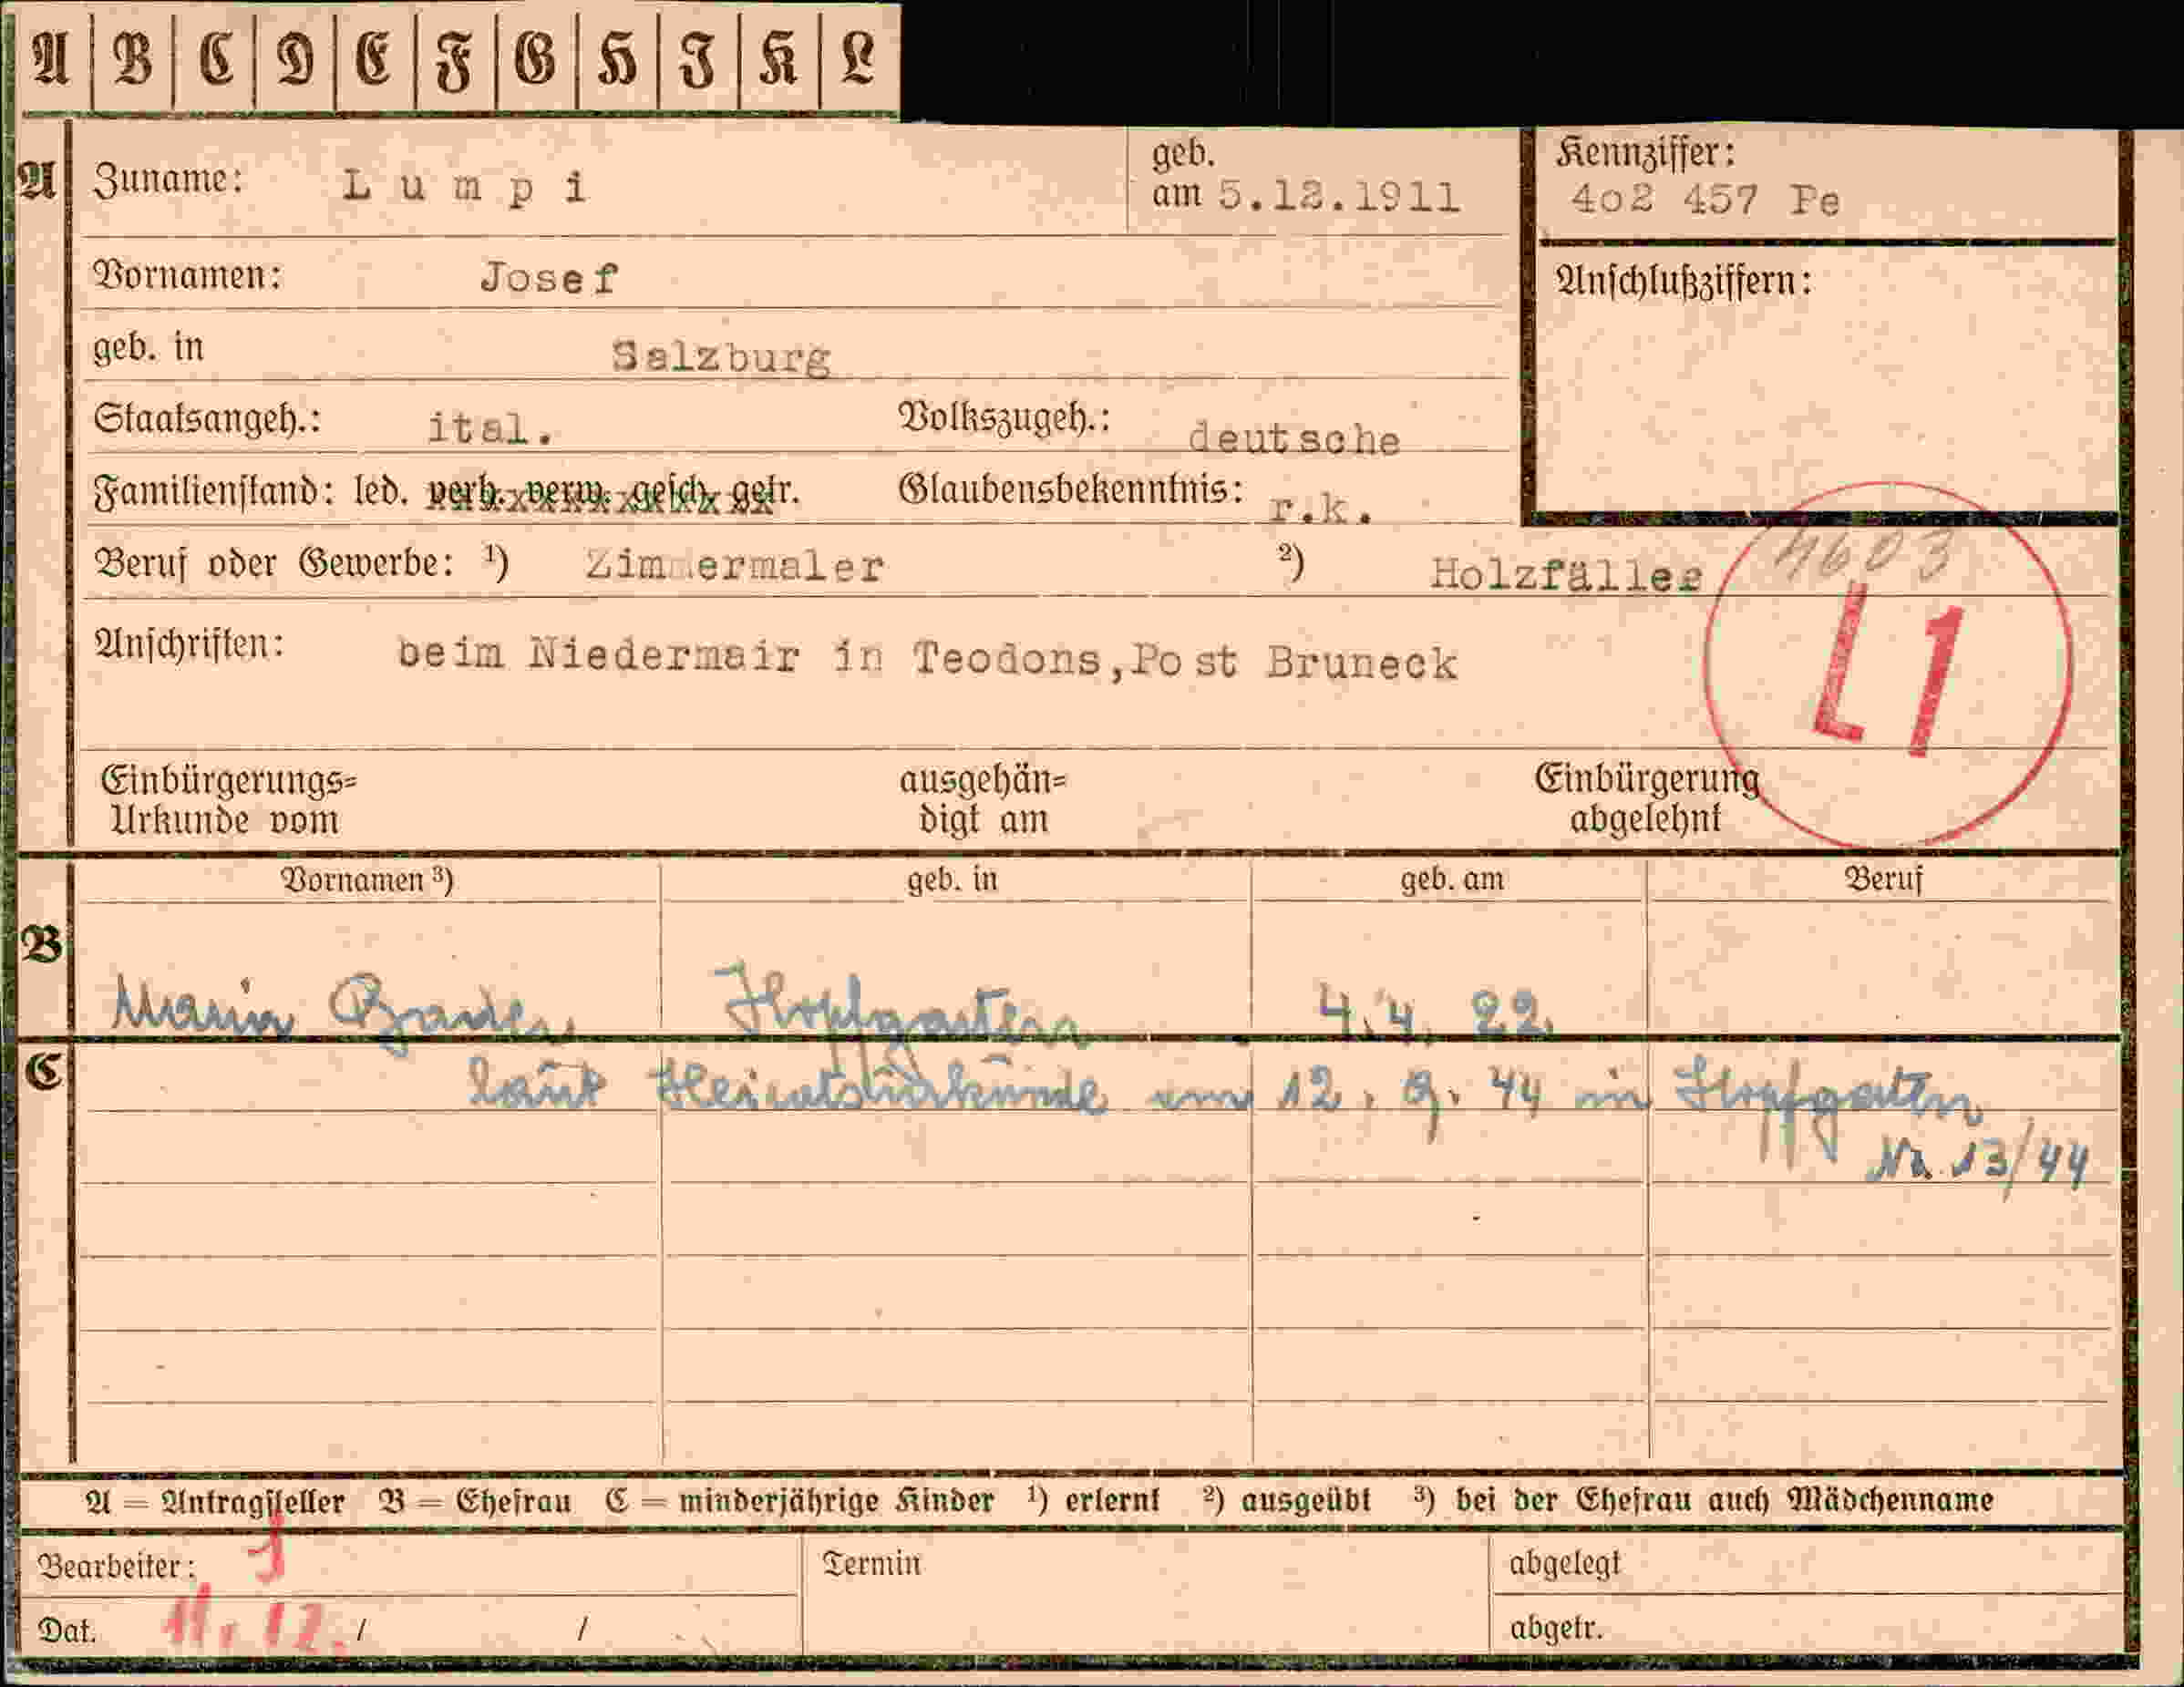 A B C D E F G H I K L
A Zuname: Lumpi geb. am 5.12.1911 Kennziffer: 4o2 457 Pe
Vornamen: Josef Anschlußziffern:
geb. in Salzburg
Staatsangeh.: ital. Volkszugeh.: deutsche
Familienstand: led. verh. verw. gesch. getr. Glaubensbekenntnis: r.k.
Beruf oder Gewerbe: ¹) Zimmermaler ²) Holzfäller 4603
Anschriften: beim Niedermair in Teodons,Post Bruneck L1
Einbürgerungs= ausgehän= Einbürgerung
Urkunde vom digt am abgelehnt
Vornamen ³) geb. in geb. am Beruf
B
Maria Hopfgarten 4.4. 22.
C laut Heiratsurkunde am 12. 9. 44 in Hopfgarten
Nr. 13/44
A = Antragsteller B = Ehefrau C = minderjährige Kinder ¹) erlernt ²) ausgeübt ³) bei der Ehefrau auch Mädchenname
Bearbeiter: Termin abgelegt
Dat. 11. 12. / / abgetr.